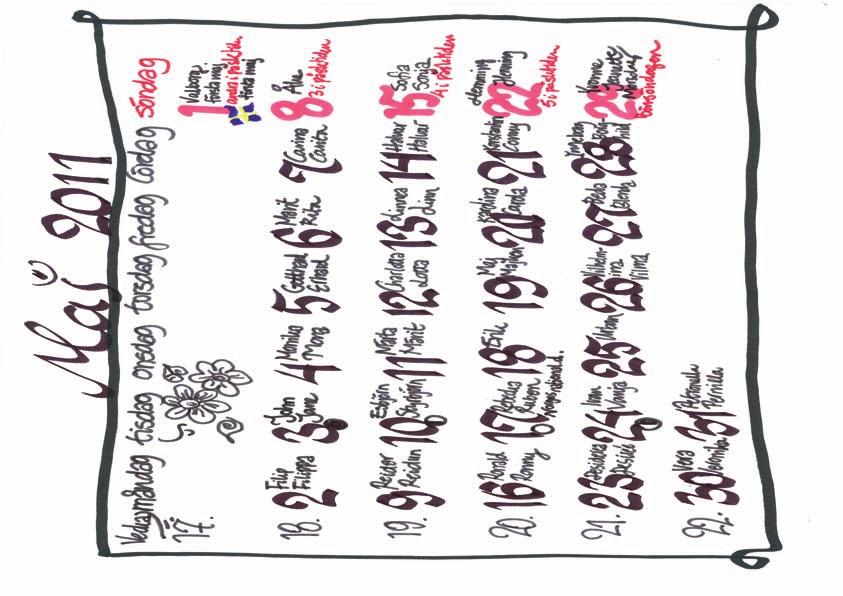 Maj 2011
Vecka måndag tisdag onsdag torsdag fredag lördag söndag
17.
1 Valborg
första maj
andra i påsktiden
första maj
18.
2 Filip
Filippa
3 John
Jane
4 Monika
Mona
5 Gotthard
Erhard
6 Marit
Rita
7 Carina
Carita
8 Åke
3 i påsktiden
19.
9 Reidar
Reidun
10 Esbjörn
Styrbjörn
11 Märta
Märit
12 Charlotta
Lotta
13 Linnea
Linn
14 Halvard
Halvar
15 Sofia
Sonja
4 i påsktiden
20.
16 Ronald
Ronny
17 Rebecka
Ruben
Norges nationald.
18 Erik
19 Maj
Majken
20 Karolina
Carola
21 Konstantin
Conny
22 Hemming
Henning
5 i påsktiden
21.
23 Desideria
Desiree
24 Ivan
Vanja
25 Urban
26 Vilhelm-
ina
Vilma
27 Beda
Blenda
28 Ingeborg
Borg-
hild
29 Yvonne
Jeanette
Mors dag
Bönsöndagen
22.
30 Vera
Veronika
31 Petronella
Pernilla